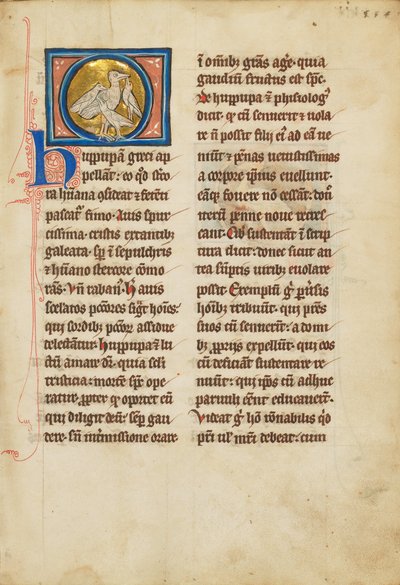 Huppupā greci ap
pellāt: eo qđ sterco
ra hūana ꝯsiderat ⁊ fetēti
pascat᷑ fimo. Auis spur
cissima. cristis extantib;
galeata. sp̄ ī sepulchris
⁊ hūano stercore cōmo
rās. Vn̄ raban᷒. H̄ auis
scelatos pc̄ores sigᷓt hoīes.
qui sordib; pc̄oꝝ assidue
delectantur. Huppupa ⁊ lu
ctū amare dr̄. quia sc̄li
tristicia. mortē sp̄c ope
ratur. ꝓpter qđ oportet eū
qui diligit deū. sēp gau
dere. sn̄ īt᷑missione orare
ī omīb; grās age. quia
gaudiū fructus est sp̄c.
De huppupa ⁊ phisiolog᷒
dicit. qđ cū senuerit ⁊ uola
re n̄ possit filii ei᷒ ad eā ue
niūt ⁊ pēnas uetustissimas
a corpore ip̄ius euellunt.
eāq; fouere nō cessāt. don
iterū penne noue recres
cant. Cib᷒ sustentāt ī scrip
tura dicit. donec sicut an
tea sūptis uirib; euolare
possit. Exemplū g̊ p̄uisis
hoīb; tribuūt. qui pr̄es
suos cū senuerīt. a domi
b; ꝓpriis expellūt. qui eos
cū deficiāt sustentare re
nuūt. qui ip̄os cū adhuc
paruuli eēnt educauerūt.
Videat g̊ hō rōnabilis qđ
pr̄i ul᷑ mr̄i debeat. cum